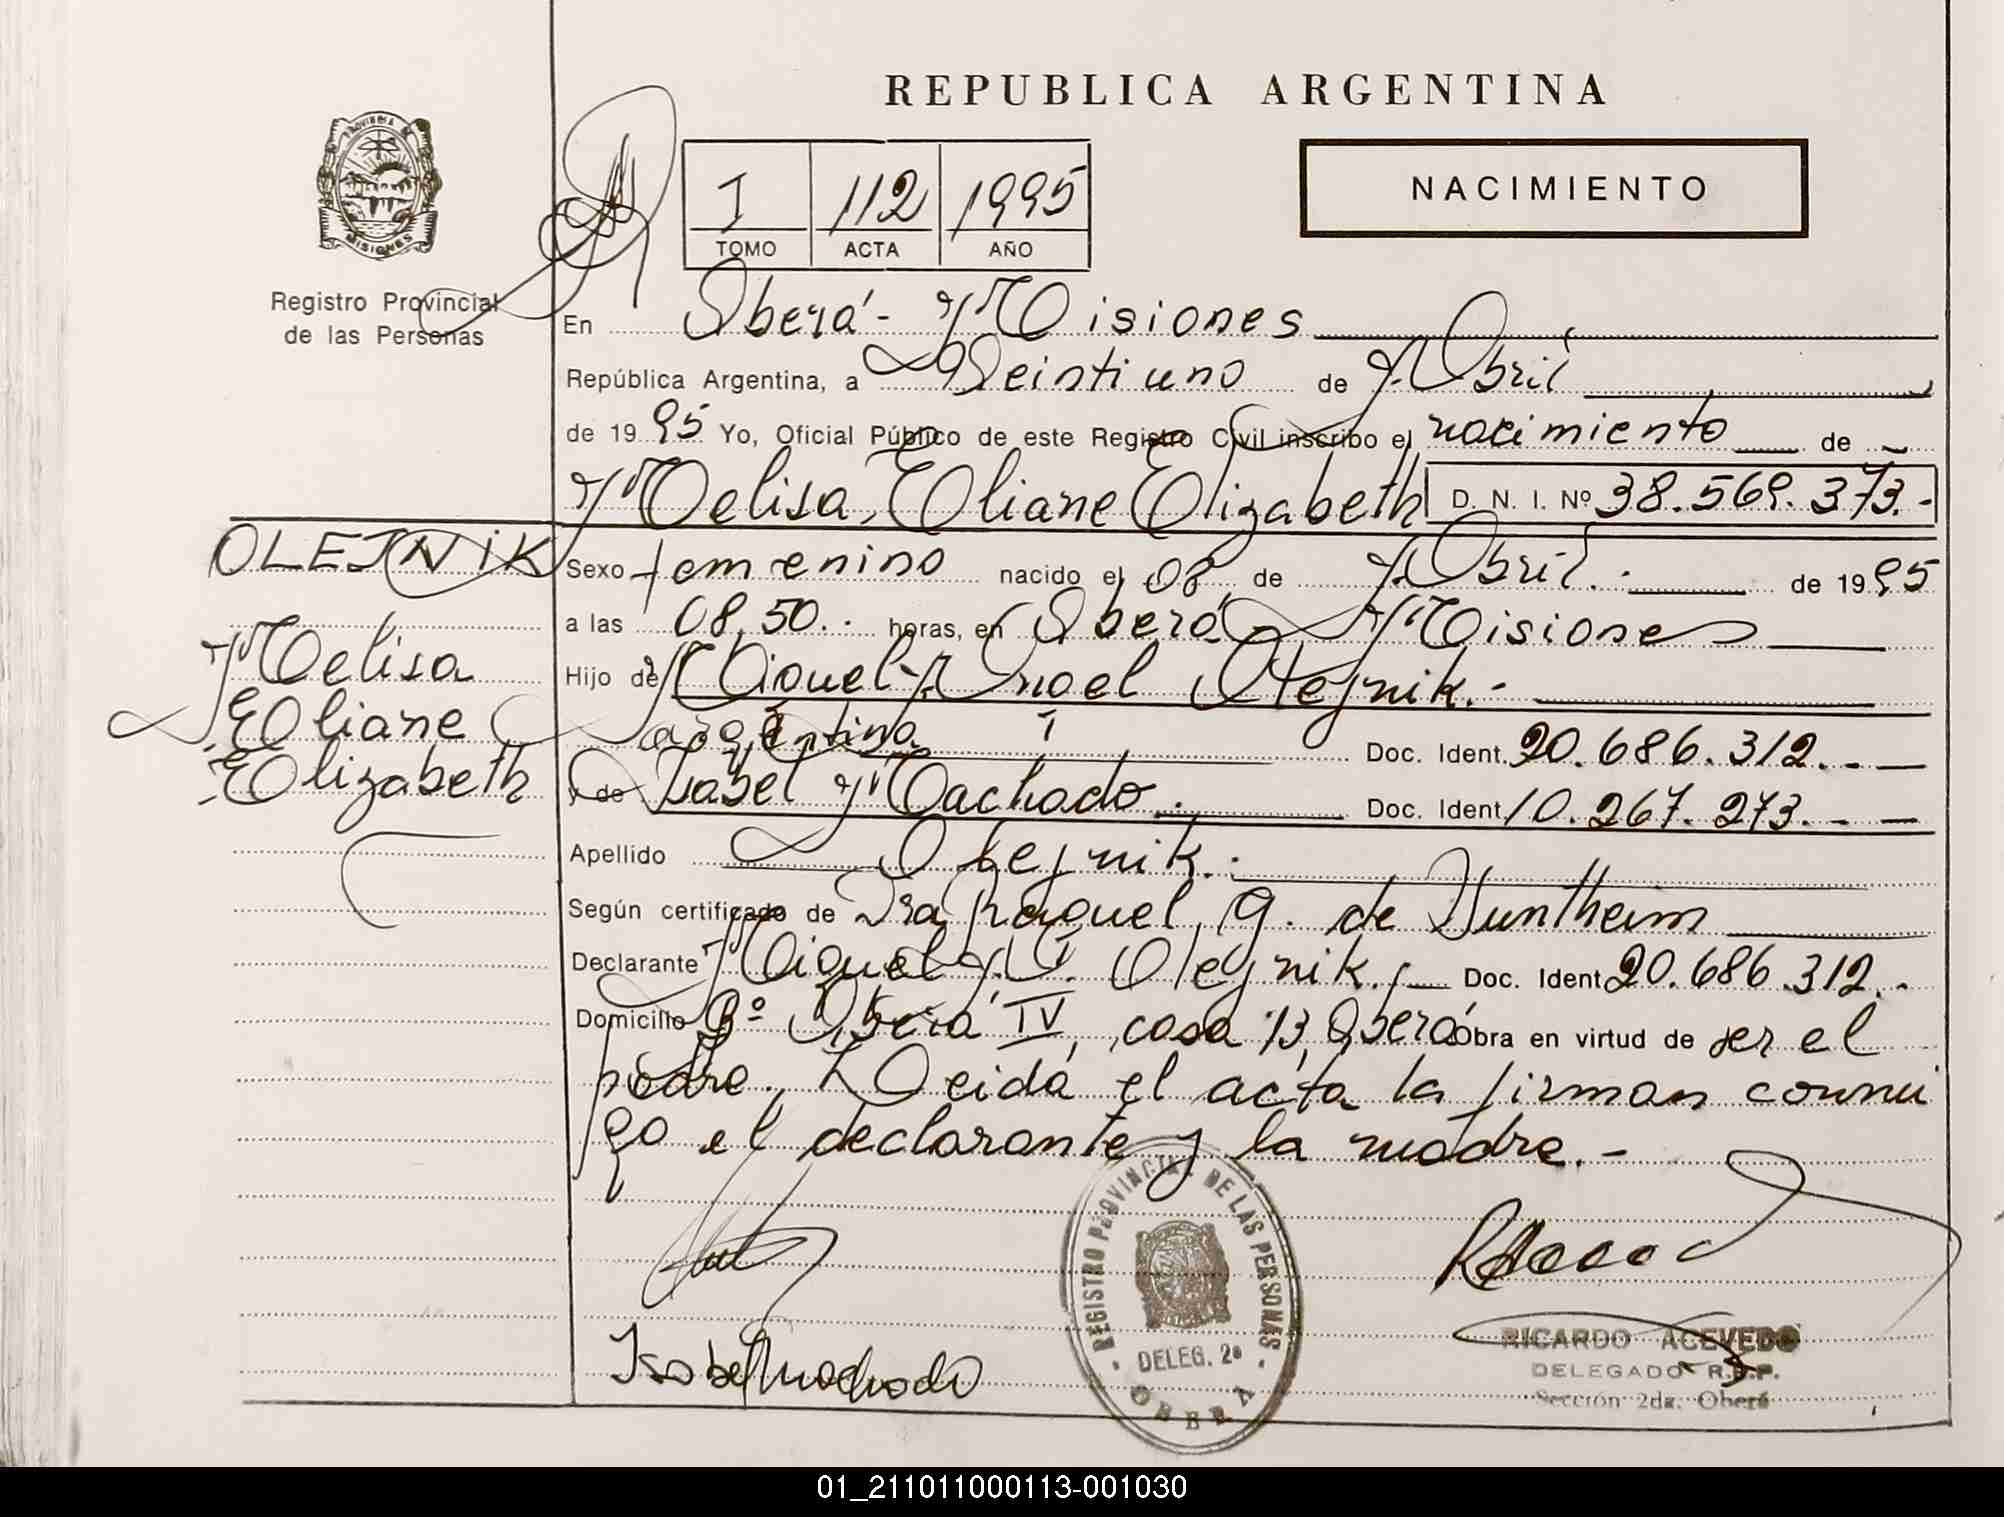 REPUBLICA ARGENTINA
PROVINCIA DE
MISIONES
Registro Provincial
de las Personas
I 112 1995
TOMO ACTA AÑO
NACIMIENTO
En Oberá - Misiones
República Argentina, a Veintiuno de Abril
de 19 95 Yo, Oficial Público de este Registro Civil inscribo el nacimiento de
Melisa, Eliane Elizabeth D. N. I. Nº 38.569.373.-
OLEJNIK
Melisa
Eliane
Elizabeth
Sexo femenino nacido el 08 de Abril. de 19 95
a las 08,50.. horas, en Oberá Misiones
Hijo de Miguel Angel Olejnik.-
argentina Doc. Ident. 20.686.312.--
y de Isabel Machado. Doc. Ident. 10.267.273.--
Apellido Olejnik.
Según certificado de Dra Raquel, G. de
Declarante Miguel A. Olejnik. Doc. Ident. 20.686.312.-
Domicilio Bº Oberá IV, casa 13, Oberá Obra en virtud de ser el
padre. Leida el acta la firman conmi
go el declarante y la madre.-
Isabel Machado
REGISTRO PROVINCIAL DE LAS PERSONAS
DELEG. 2ª
OBERA
RICARDO ACEVEDO
DELEGADO R.P.P.
Sección 2da. Oberá
01_211011000113-001030